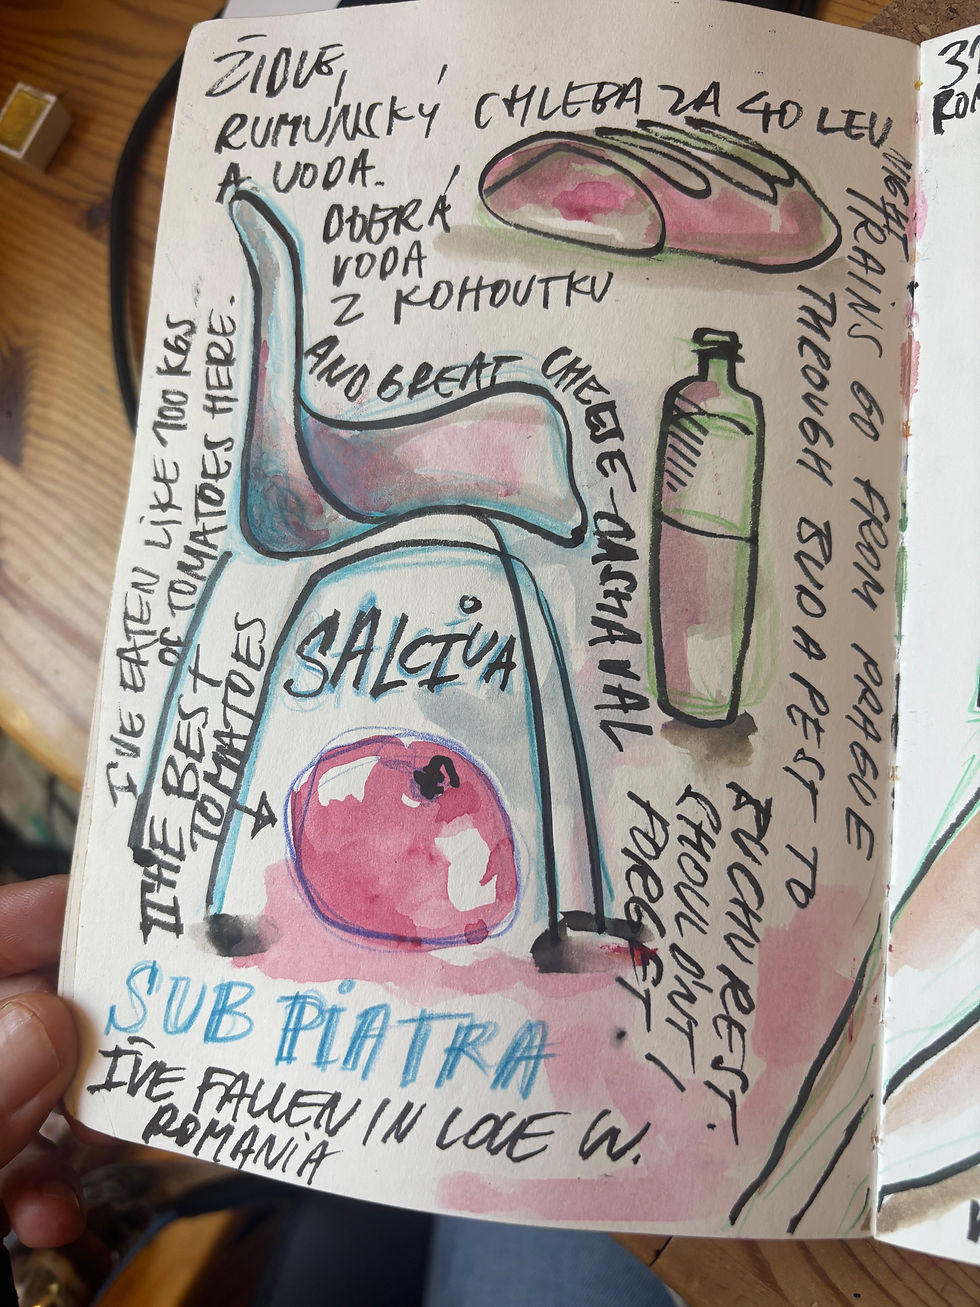 ŽIDLE,
RUMUNSKÝ CHLEBA ZA 40 LEU
A VODA.
DOBRÁ
VODA
Z KOHOUTKU
AND GREAT CHEESE - CASCHAVAL
NIGHT
TRAINS GO FROM PRAGUE
THROUGH BUDAPEST TO
BUCHUREST.
I'VE EATEN LIKE 100 KGS
OF TOMATOES HERE.
THE BEST
TOMATOES
SALCIUA
I SHOULDN'T
FORGET!
SUB PIATRA
I'VE FALLEN IN LOVE W.
ROMANIA